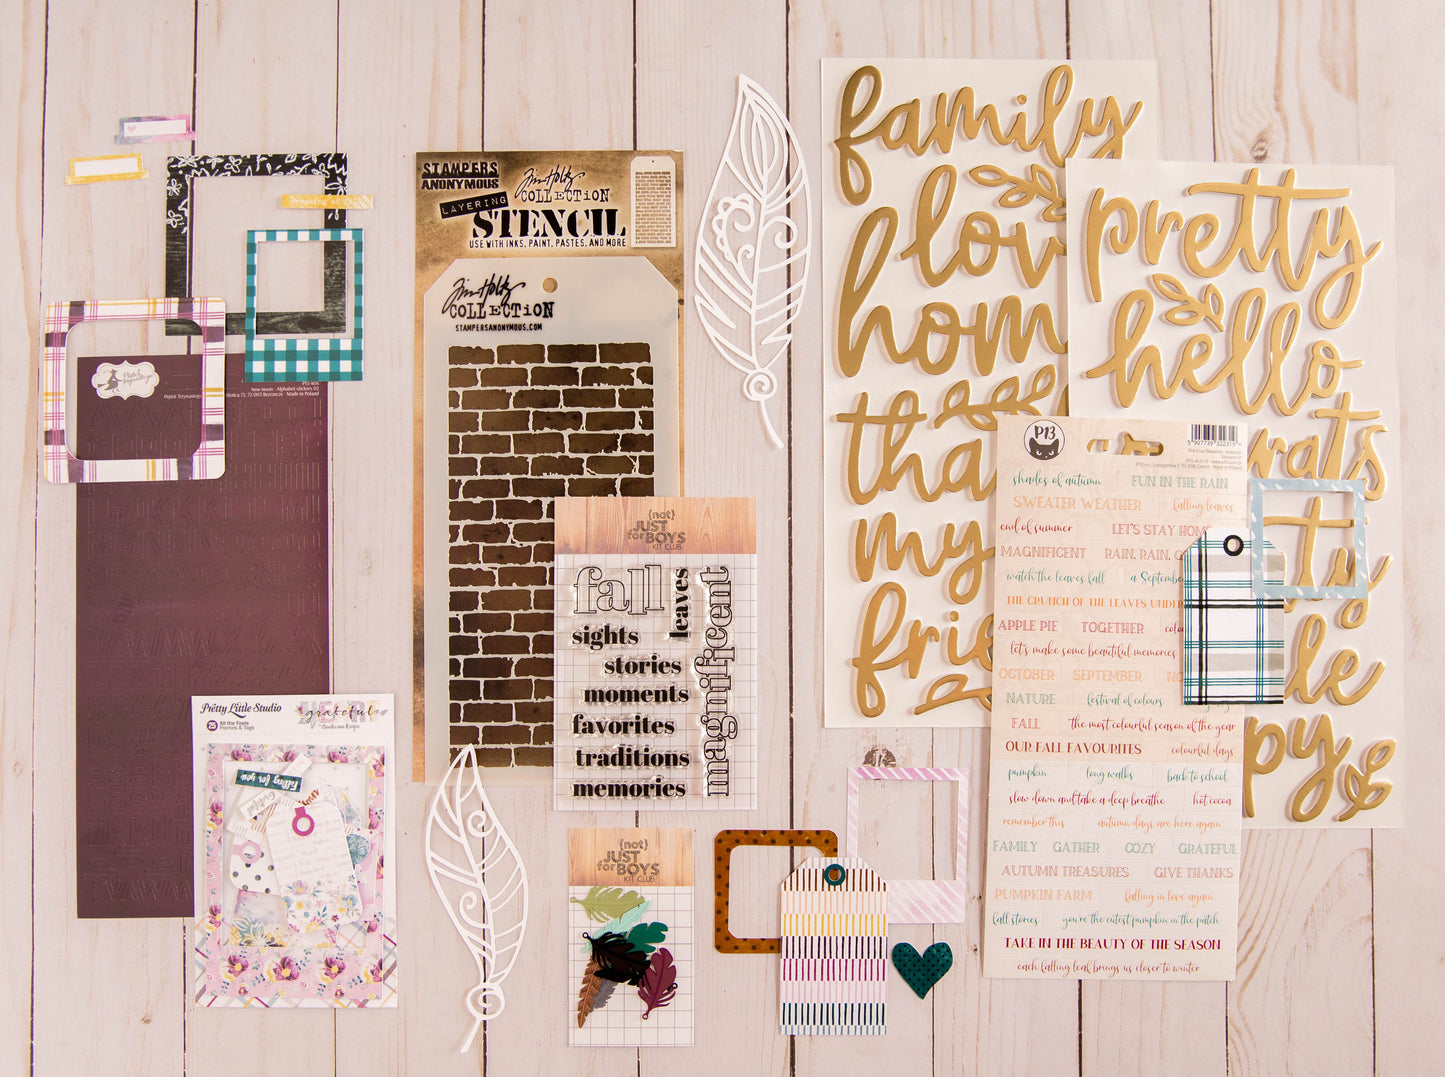 dreaming of fall
P13-405
New moon - Alphabet stickers 02
Made in Poland
STAMPERS
ANONYMOUS
Tim Holtz
COLLECTION
LAYERING
STENCIL
USE WITH INKS, PAINT, PASTES, AND MORE
Tim Holtz
COLLECTION
STAMPERSANONYMOUS.COM
{not}
JUST
for BOYS
KIT CLUB
fall
leaves
magnificent
sights
stories
moments
favorites
traditions
memories
Pretty Little Studio
25 All the Feels
Frames & Tags
grateful
falling for you
{not}
JUST
for BOYS
KIT CLUB
family
lov
hom
tha
my
frie
pretty
hello
rats
ty
le
py
P13
5 907739 322319 >
The Four Seasons - Autumn
Stickers 01
shades of autumn
FUN IN THE RAIN
SWEATER WEATHER
falling leaves
end of summer
LET'S STAY HOME
MAGNIFICENT
RAIN, RAIN, G
watch the leaves fall
a Septembe
THE CRUNCH OF THE LEAVES UNDER
APPLE PIE
TOGETHER
colou
let's make some beautiful memories
OCTOBER
SEPTEMBER
NO
NATURE
festival of colours
FALL
the most colourful season of the year
OUR FALL FAVOURITES
colourful days
pumpkin
long walks
back to school
slow down and take a deep breathe
hot cocoa
remember this
autumn days are here again
FAMILY
GATHER
COZY
GRATEFUL
AUTUMN TREASURES
GIVE THANKS
PUMPKIN FARM
falling in love again
fall stories
you're the cutest pumpkin in the patch
TAKE IN THE BEAUTY OF THE SEASON
each falling leaf brings us closer to winter